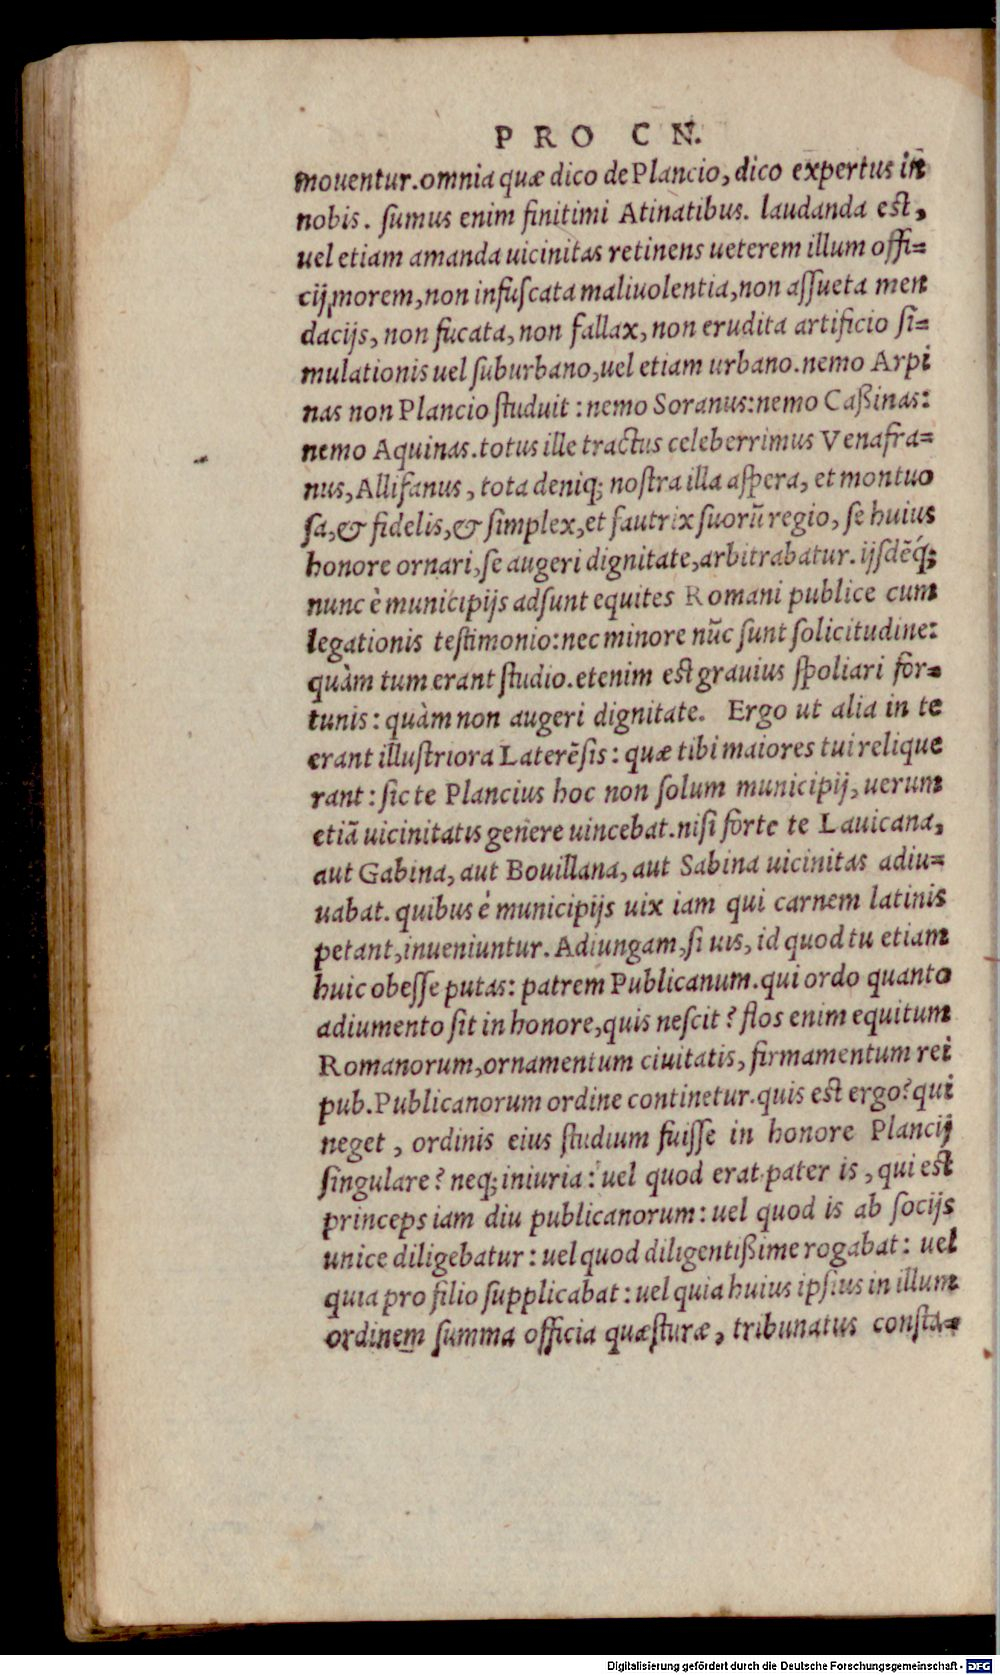 PRO CN.
mouentur. omnia quæ dico de Plancio, dico expertus in
nobis. sumus enim finitimi Atinatibus. laudanda est,
uel etiam amanda uicinitas retinens ueterem illum offi=
cij morem, non infuscata maliuolentia, non assueta men
dacijs, non fucata, non fallax, non erudita artificio si=
mulationis uel suburbano, uel etiam urbano. nemo Arpi
nas non Plancio studuit: nemo Soranus: nemo Caßinas:
nemo Aquinas. totus ille tractus celeberrimus Venafra=
nus, Allifanus, tota deniq; nostra illa aspera, et montuo
sa, & fidelis, & simplex, et fautrix suorũ regio, se huius
honore ornari, se augeri dignitate, arbitrabatur. ijsdẽq́;
nunc è municipijs adsunt equites Romani publice cum
legationis testimonio: nec minore nũc sunt solicitudine:
quàm tum erant studio. etenim est grauius spoliari for=
tunis: quàm non augeri dignitate. Ergo ut alia in te
erant illustriora Laterẽsis: quæ tibi maiores tui relique
rant: sic te Plancius hoc non solum municipij, uerum
etiã uicinitatis genere uincebat. nisi forte te Lauicana,
aut Gabina, aut Bouillana, aut Sabina uicinitas adiu=
uabat. quibus è municipijs uix iam qui carnem latinis
petant, inueniuntur. Adiungam, si uis, id quod tu etiam
huic obesse putas: patrem Publicanum. qui ordo quanto
adiumento sit in honore, quis nescit? flos enim equitum
Romanorum, ornamentum ciuitatis, firmamentum rei
pub. Publicanorum ordine continetur. quis est ergo? qui
neget, ordinis eius studium fuisse in honore Plancij
singulare? neq; iniuria: uel quod erat pater is, qui est
princeps iam diu publicanorum: uel quod is ab socijs
unice diligebatur: uel quod diligentißime rogabat: uel
quia pro filio supplicabat: uel quia huius ipsius in illum
ordinem summa officia quæsturæ, tribunatus consta=
Digitalisierung gefördert durch die Deutsche Forschungsgemeinschaft - DFG